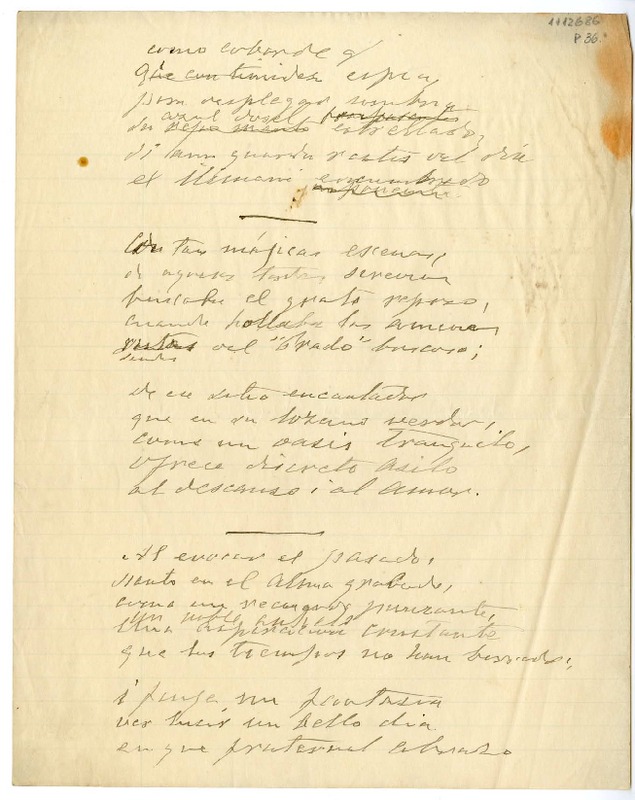 1112686
P 36.
como cobarde q/
Que con timidez espia,
para desplegar sombria
azul dosel
su regio manto estrellado,
si aun guarda restos del dia
el Illimani encumbrado

Con tan mágicas escenas,
de agrestes tintas serenas
buscaba el grato reposo,
cuando hollaba las amenas
vistas del "Prado" boscoso;
sendas

De ese sitio encantador
que en su lozano verdor,
como un oasis tranquilo,
ofrece discreto asilo
al descanso i al amor.

Al evocar el pasado,
siento en el alma grabado,
como un recuerdo punzante,
un noble anhelo
Una aspiración constante
que los tiempos no han borrado;

i finje mi fantasia
ver lucir un bello dia
en que fraternal abrazo